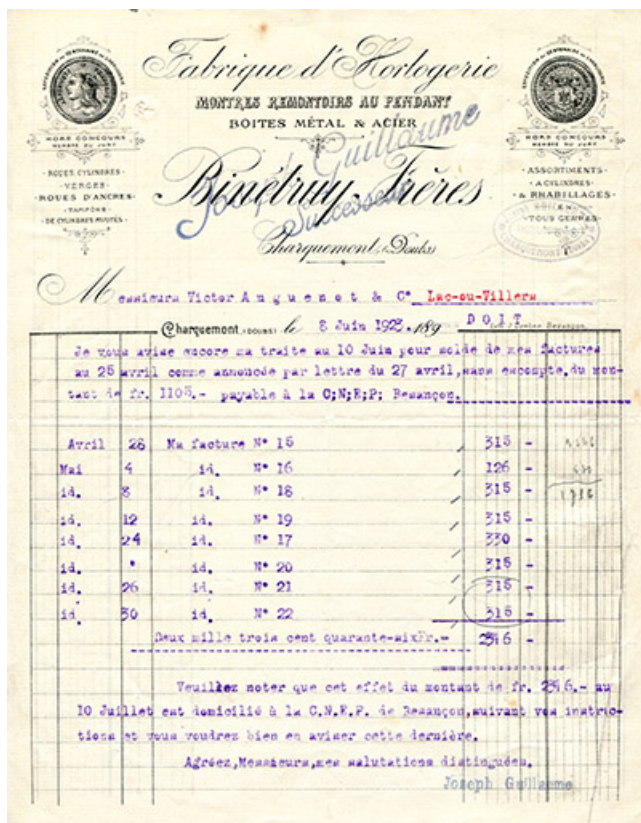 Fabrique d'Horlogerie
MONTRES REMONTOIRS AU PENDANT
BOITES MÉTAL & ACIER
HORS CONCOURS
MEMBRE DU JURY
HORS CONCOURS
MEMBRE DU JURY
ROUES CYLINDRES
VERGES
ROUES D'ANCRES
TAMPONS
DE CYLINDRES PIVOTÉS
Binétruy Frères
Joseph Guillaume
Successeur
ASSORTIMENTS
A CYLINDRES
& RHABILLAGES
EN
TOUS GENRES
Charquemont (Doubs)
Messieurs Victor Anguenot & Cº Lac-ou-Villers
Charquemont, (DOUBS) le 8 Juin 1923. 189 DOIT
Je vous avise encore ma traite au 10 Juin pour solde de mes factures
au 25 avril comme annoncée par lettre du 27 avril, sans escompte, du mon-
tant de fr. 1103.- payable à la C;N;E;P; Besançon.
Avril 28 Ma facture Nº 15 315 -
Mai 4 id. Nº 16 126 -
id. 8 id. Nº 18 315 -
id. 12 id. Nº 19 315 -
id. 24 id. Nº 17 330 -
id. " id. Nº 20 315 -
id. 26 id. Nº 21 315 -
id. 30 id. Nº 22 315 -
Deux mille trois cent quarante-sixFr.- 2346 -
Veuillez noter que cet effet du montant de fr. 2346.- au
10 Juillet est domicilié à la C.N.E.P. de Besançon, suivant vos instruc-
tions et vous voudrez bien en aviser cette dernière.
Agréez, Messieurs, mes salutations distinguées.
Joseph Guillaume